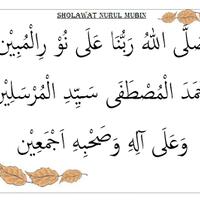 SHOLAWAT NURUL MUBIN
صَلَّى اللهُ رَبُّنَا عَلَى نُوْرِ الْمُبِيْن
حْمَدَ الْمُصْطَفَى سَيِّدِ الْمُرْسَلِيْن
وَعَلَى آلِهِ وَصَحْبِهِ اَجْمَعِيْن